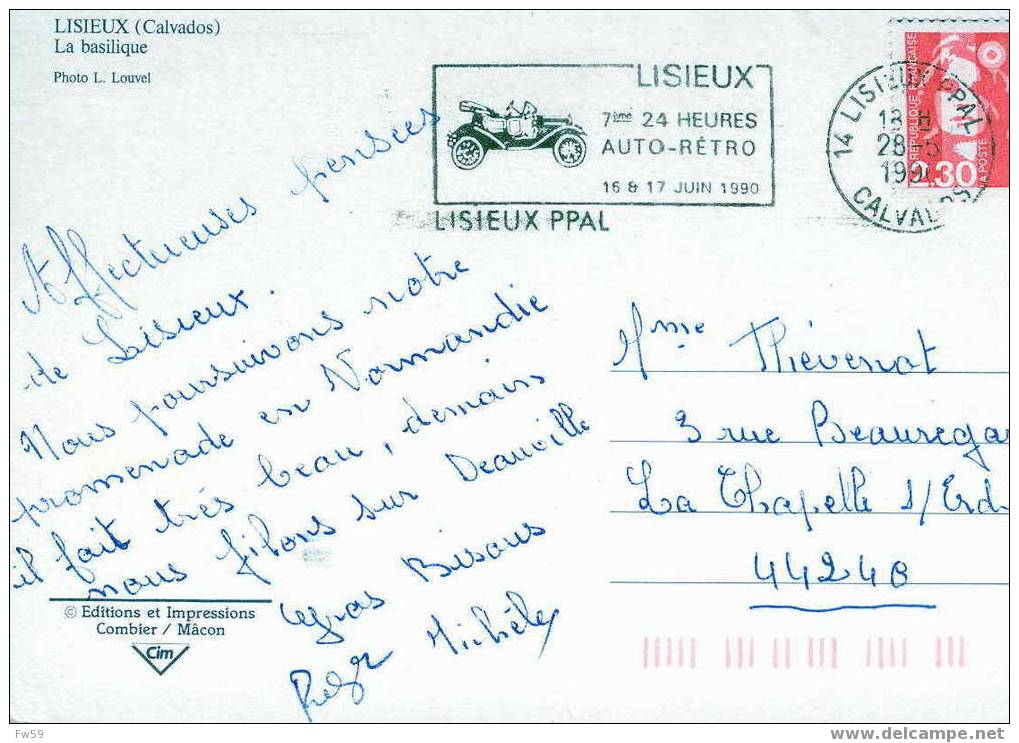 LISIEUX (Calvados)
La basilique
Photo L. Louvel
LISIEUX
7ème 24 HEURES
AUTO-RÉTRO
16 & 17 JUIN 1990
LISIEUX PPAL
14 LISIEUX PPAL
18 H
28-5
1990
CALVADOS
REPUBLIQUE FRANÇAISE
2,30
LA POSTE
Affectueuses pensées
de Lisieux.
Nous poursuivons notre
promenade en Normandie
il fait très beau, demain
nous filons sur Deauville
Gros Bisous
Michèle
Mme Thévenot
3 rue Beaurega
La Chapelle s/Erd
44240
© Editions et Impressions
Combier / Mâcon
Cim
Fw59
www.delcampe.net